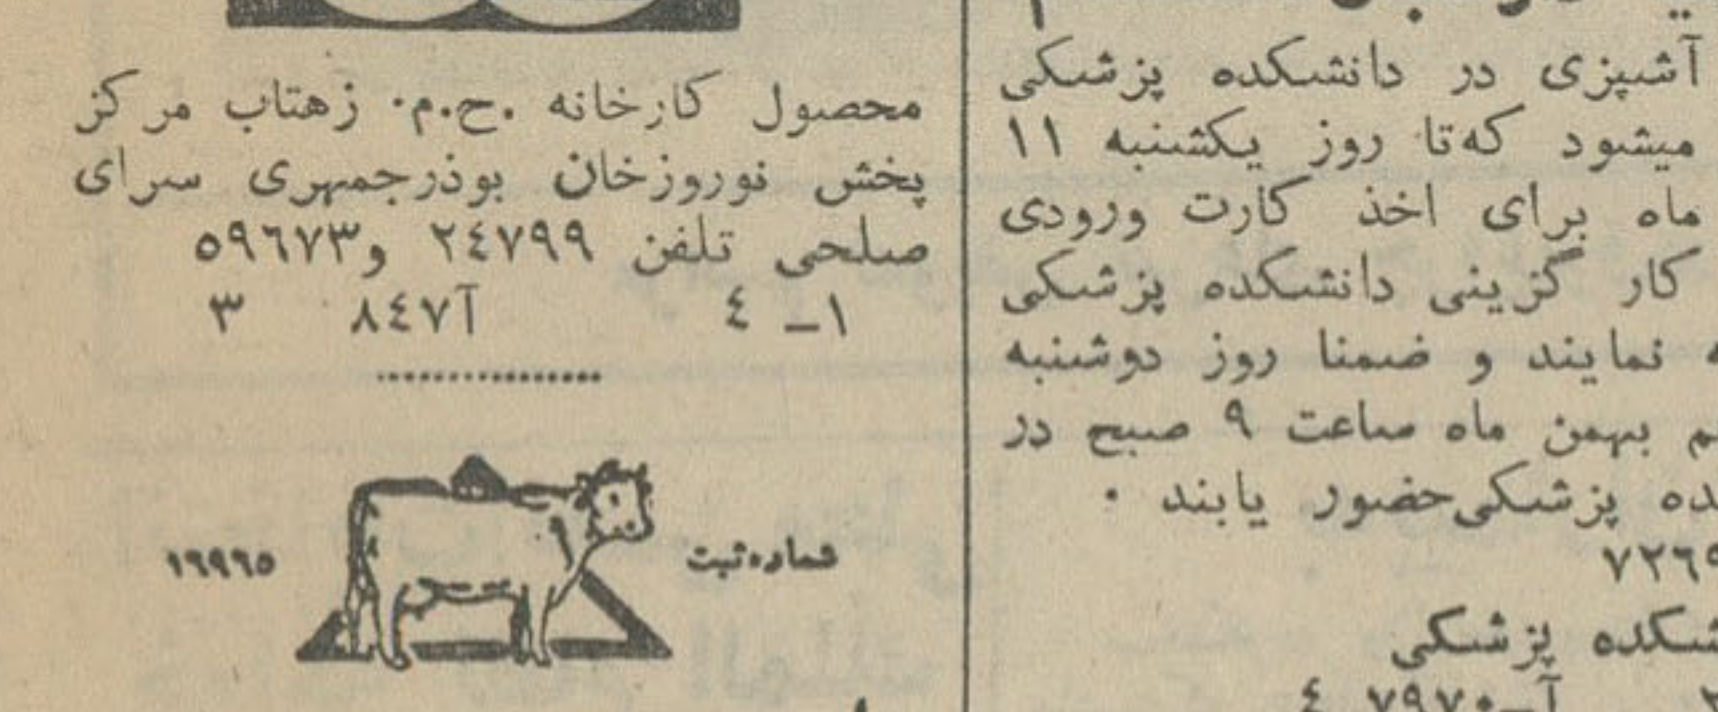 آشپزی در دانشکده پزشکی
میشود که تا روز یکشنبه ۱۱
ماه برای اخذ کارت ورودی
کار گزینی دانشکده پزشکی
نمایند و ضمنا روز دوشنبه
بهمن ماه ساعت ۹ صبح در
پزشکی حضور یابند ۰
پزشکی
آ-۷۹۷۰ ٤
محصول کارخانه .ح.م. زهتاب مرکز
پخش نوروزخان بوذرجمهری سرای
صلحی تلفن ۲٤۷۹۹ و ٥۹٦۷۳
۱- ٤ آ۸٤۷ ۳
شماره ثبت ۱٦۹۹٥